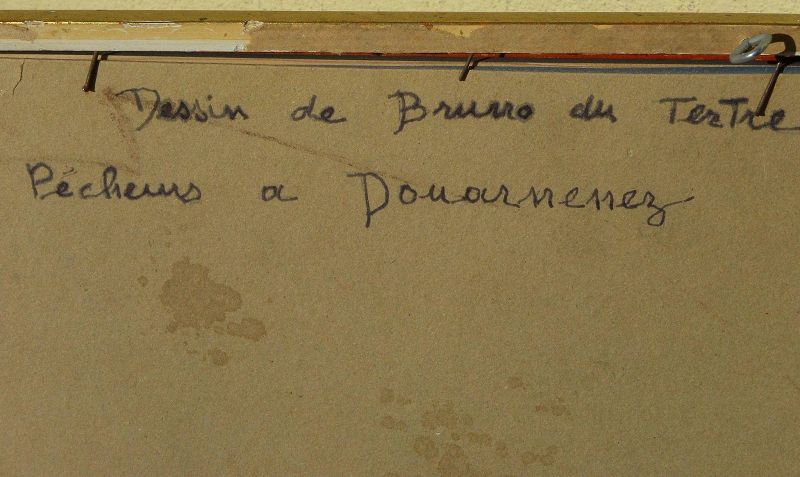 Dessin de Bruno du Tertre
Pécheurs a Douarnenez